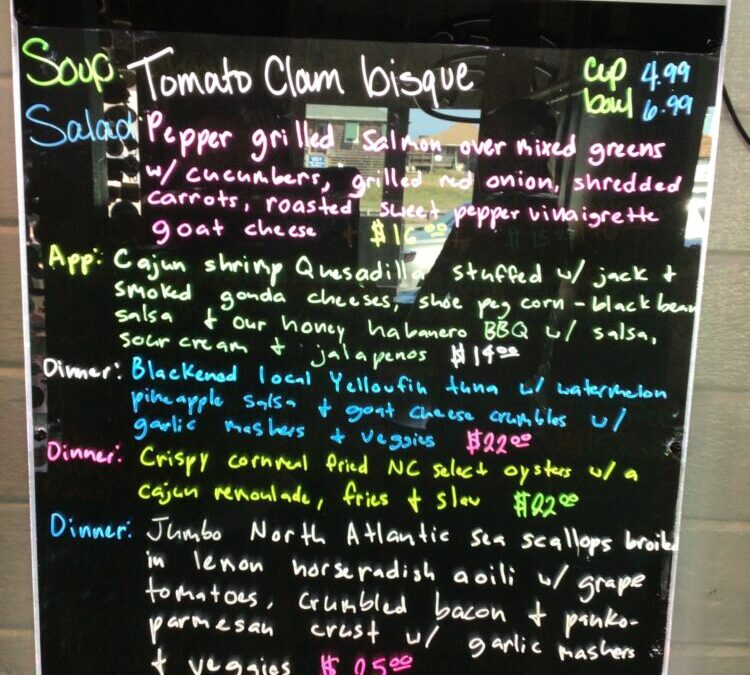 Soup: Tomato Clam bisque cup 4.99
bowl 6.99
Salad Pepper grilled Salmon over mixed greens
w/ cucumbers, grilled red onion, shredded
carrots, roasted sweet pepper vinaigrette
goat cheese $16.00
App: Cajun shrimp Quesadilla stuffed w/ jack +
smoked gouda cheeses, shoe peg corn - black bean
salsa + our honey habanero BBQ w/ salsa,
sour cream + jalapenos $14.00
Dinner: Blackened local Yellowfin tuna w/ watermelon
pineapple salsa + goat cheese crumbles w/
garlic mashers + veggies $22.00
Dinner: Crispy cornmeal fried NC select oysters w/ a
cajun remoulade, fries + slaw $22.00
Dinner: Jumbo North Atlantic sea scallops broiled
in lemon horseradish aoili w/ grape
tomatoes, crumbled bacon + panko-
parmesan crust w/ garlic mashers
+ veggies $25.00